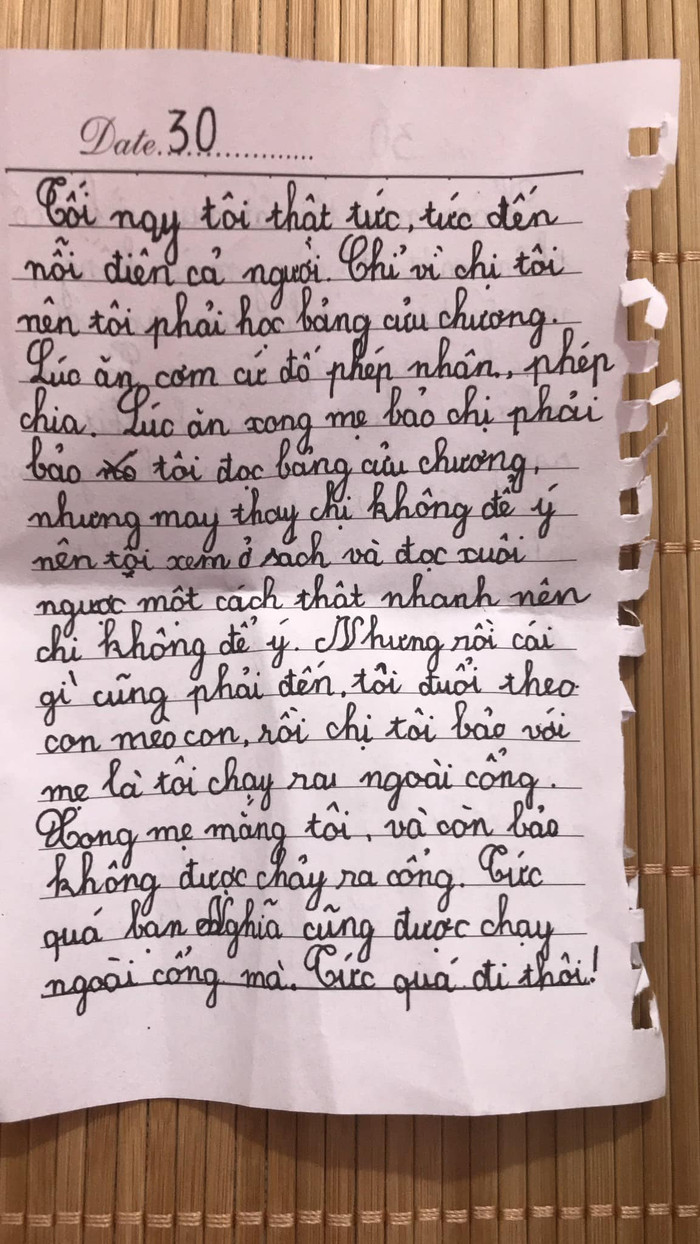 Date.30
Tối nay tôi thật tức, tức đến
nỗi điên cả người. Chỉ vì chị tôi
nên tôi phải học bảng cửu chương.
Lúc ăn cơm cứ đố phép nhân, phép
chia. Lúc ăn xong mẹ bảo chị phải
bảo tôi đọc bảng cửu chương,
nhưng may thay chị không để ý
nên tôi xem ở sach và đọc xuôi
ngược một cách thật nhanh nên
chị không để ý. Nhưng rồi cái
gì cũng phải đến, tôi đuổi theo
con mèo con, rồi chị tôi bảo với
mẹ là tôi chạy ra ngoài cổng.
Xong mẹ mắng tôi, và còn bảo
không được chảy ra cổng. Tức
quá bạn Nghĩa cũng được chạy
ngoài cổng mà. Tức quá đi thôi!